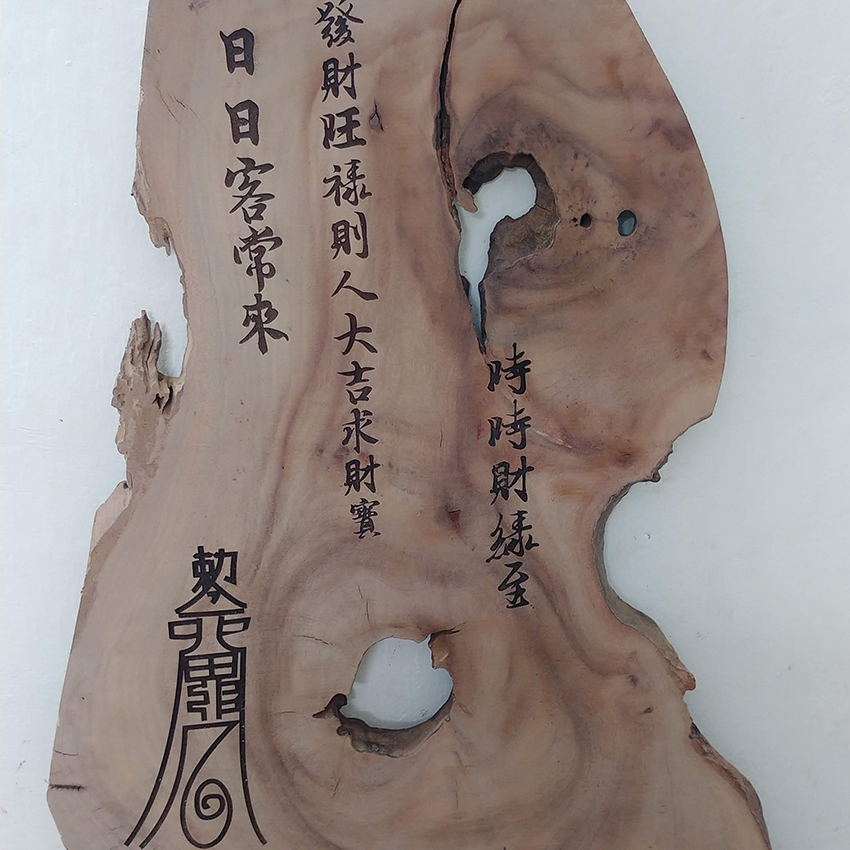 時時財綠至
發財旺祿則人大吉求財寶
日日客常來
勅